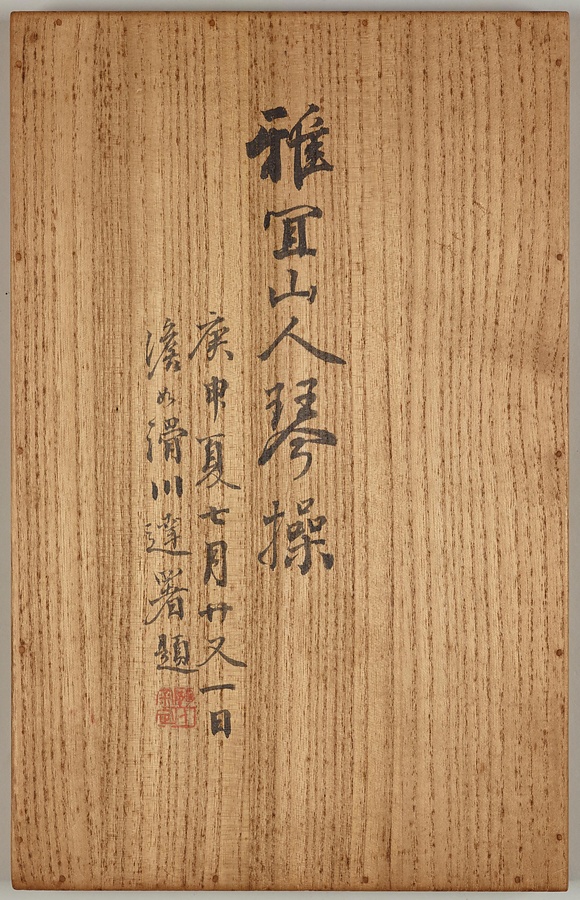 雅宜山人琴操
庚申夏七月廿又一日
澹如滑川達署題